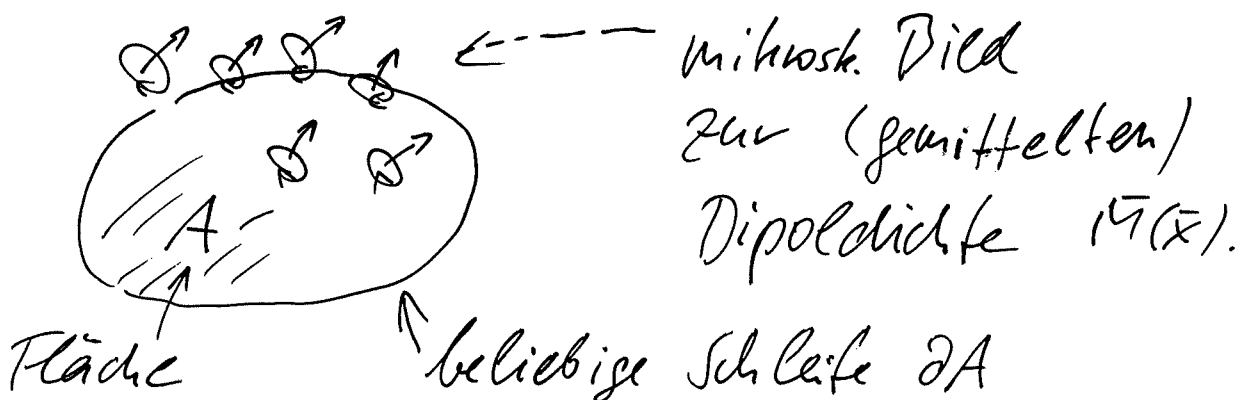 mikrosk. Bild
zur (gemittelten)
Dipoldichte M̄(x̄).
A
Fläche
beliebige Schleife ∂A